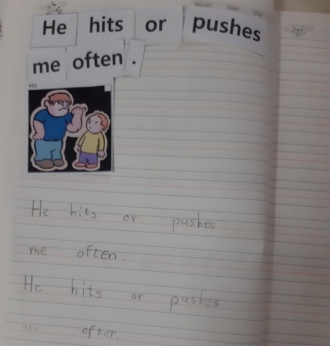 He hits or pushes
me often.
He hits or pushes
me often.
He hits or pushes
me often.